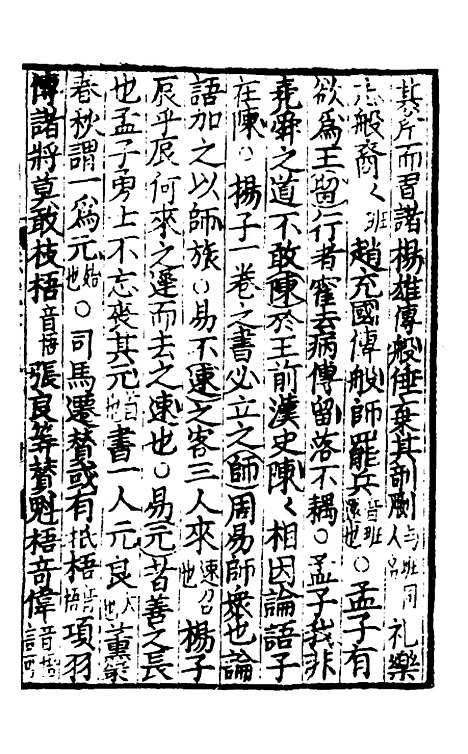 其斧而習諸楊雄傳般倕棄其剞劂与班同人名礼樂
志般裔〻班趙充國傳般師罷兵音班還也○孟子有
欲爲王留行者霍去病傳留落不耦○孟子我非
堯舜之道不敢陳於王前漢史陳〻相因論語子
在陳○楊子一卷之書必立之師周易師衆也論
語加之以師旅○易不速之客三人來速召也楊子
辰乎辰何來之遲而去之速也○易元者善之長
也孟子勇士不忘喪其元首也書一人元良大也董策
春秋謂一爲元始也○司馬遷贊或有抵梧音悟項羽
傳諸將莫敢枝梧音悟張良等贊魁梧奇偉音悟